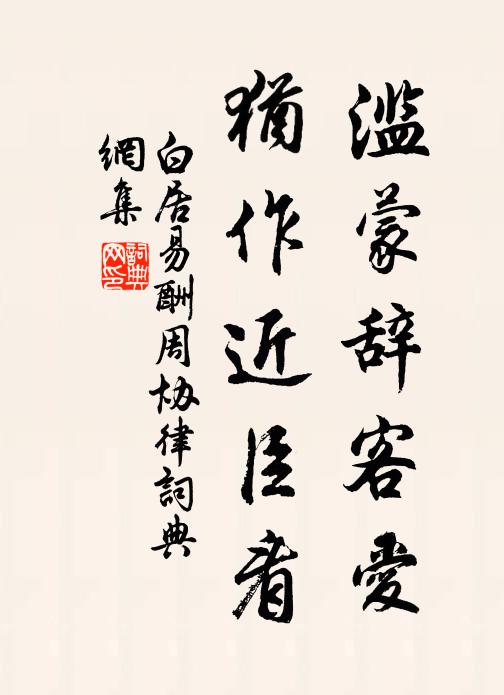 滥蒙辞客爱
犹作近臣看
白居易酬周协律詞典
網集
詞典
网印